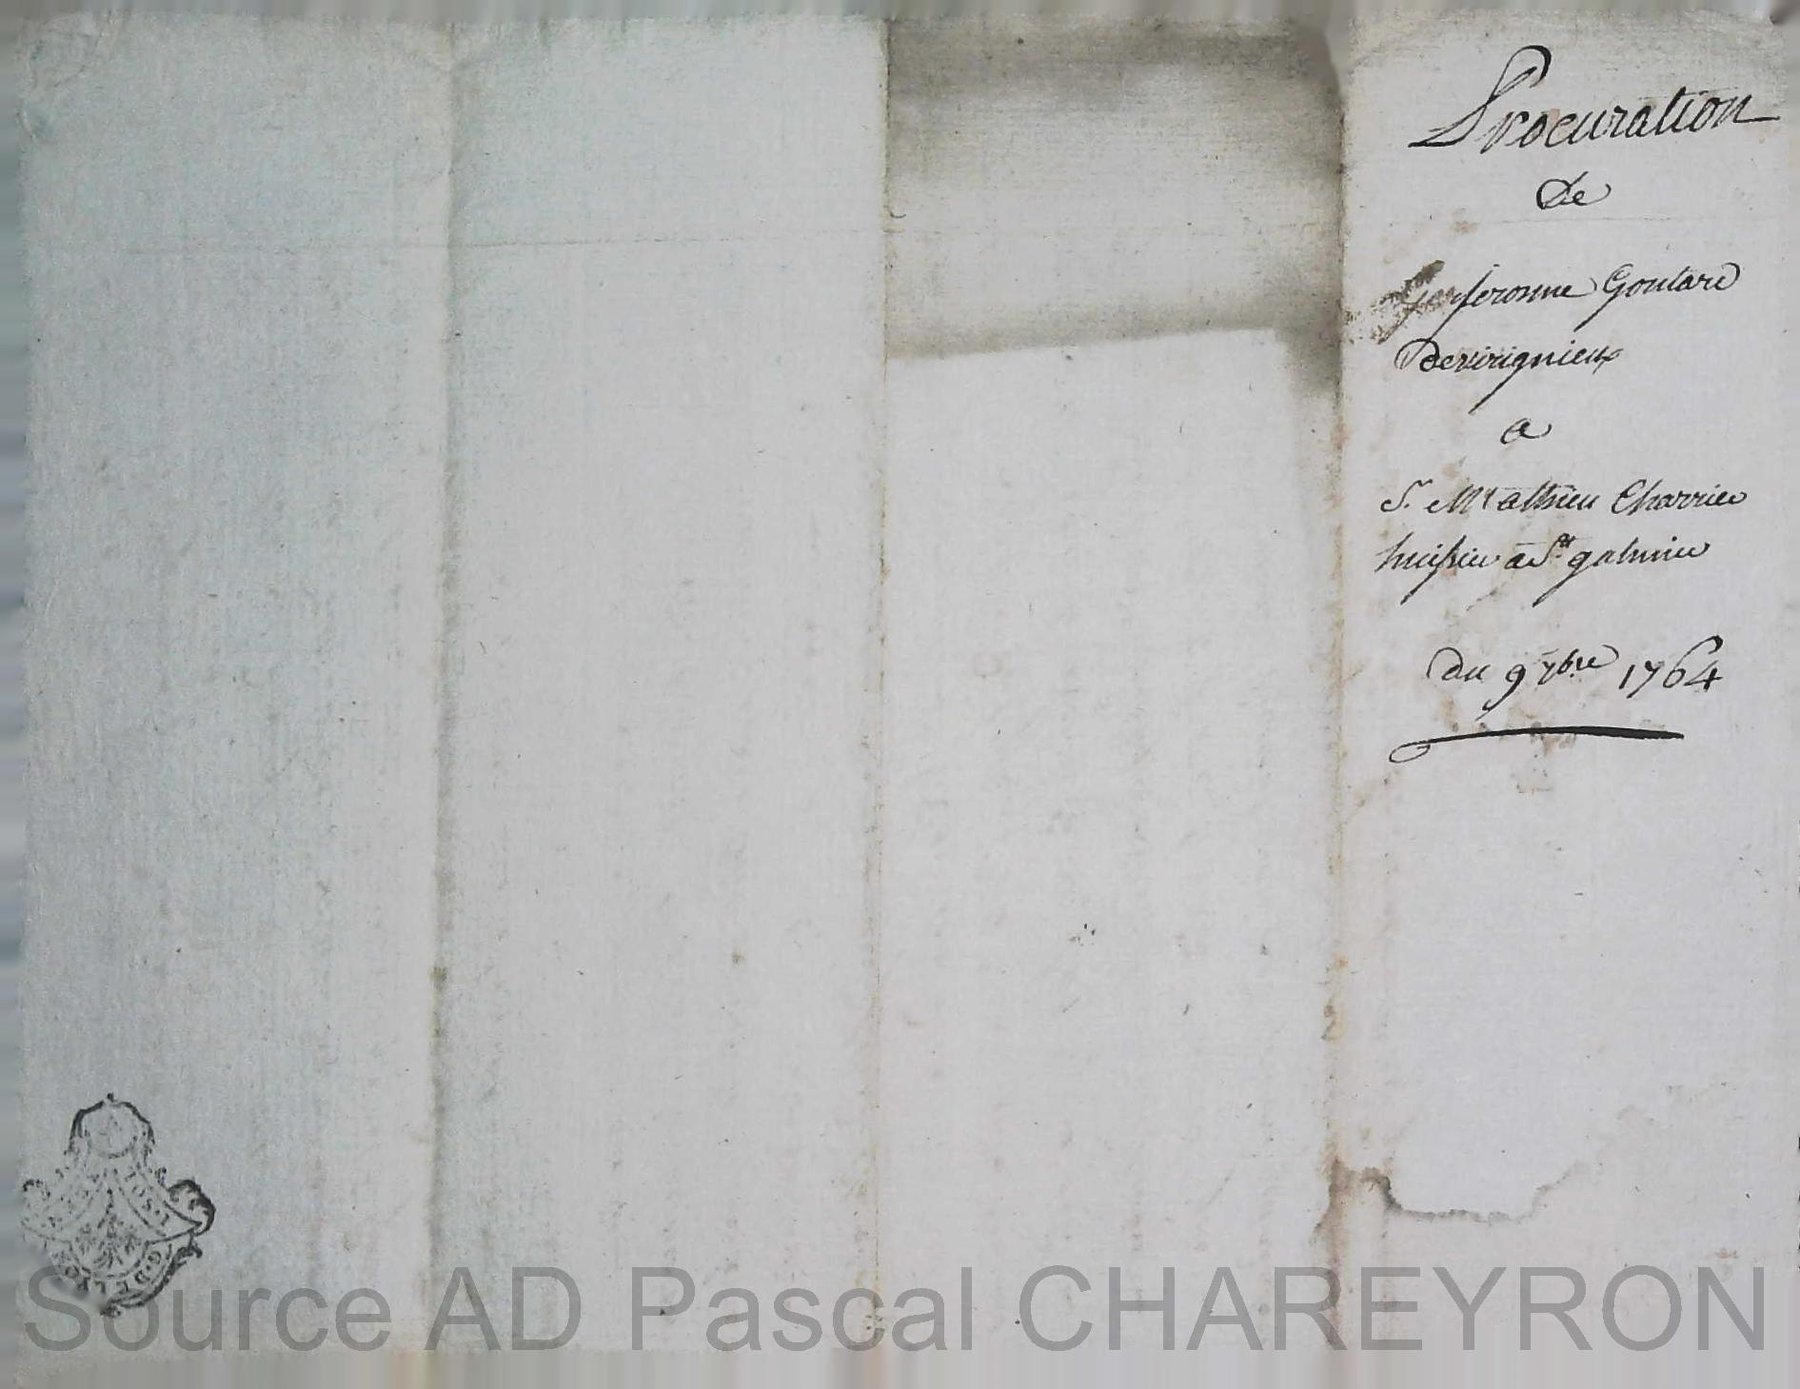 Procuration
De
jeronne Goutard
devirignieux
a
Sr. Mathieu Charrier
huissier a St. galmier
du 9 7bre 1764
Source AD Pascal CHAREYRON